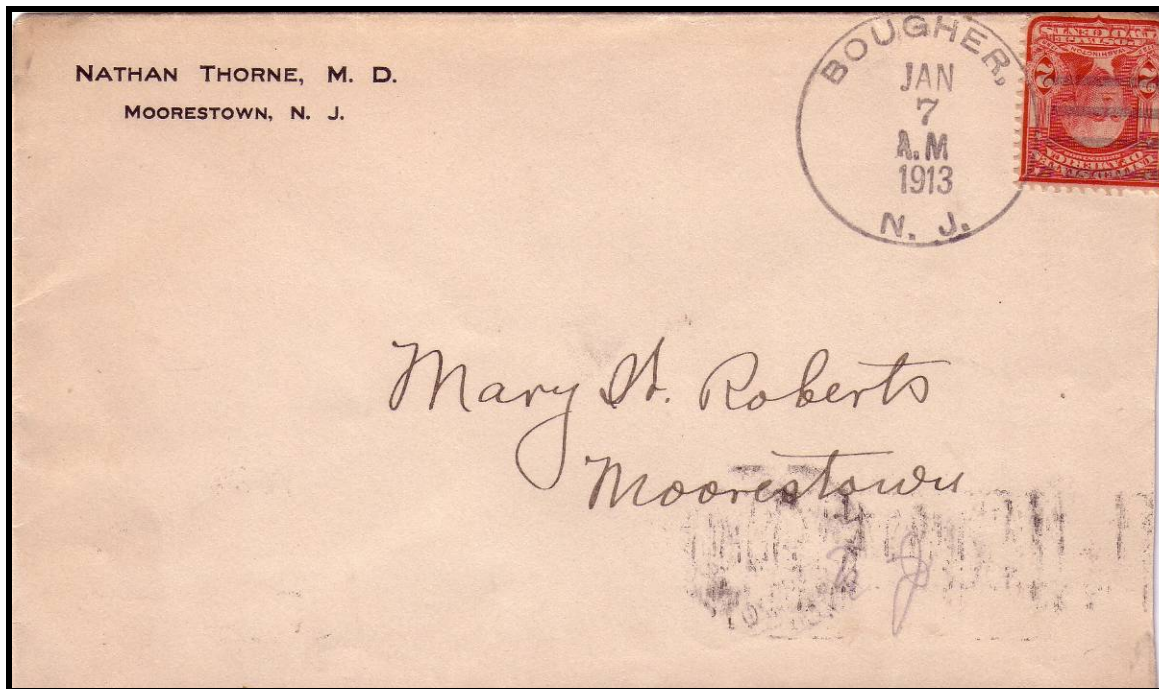 NATHAN THORNE, M. D.
MOORESTOWN, N. J.
BOUGHER,
JAN
7
A.M
1913
N. J.
Mary H. Roberts
Moorestown
N J